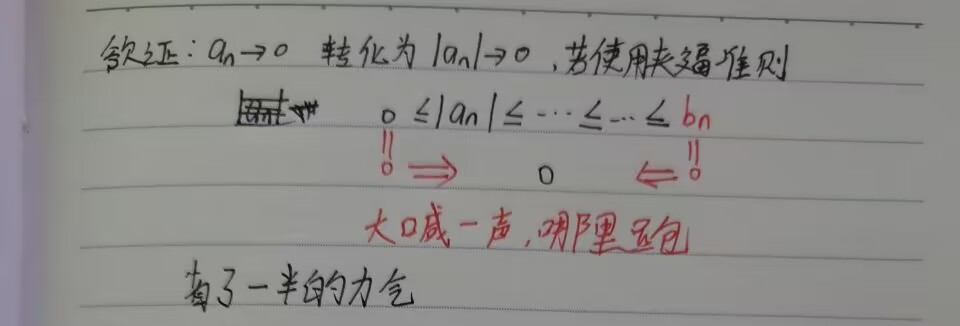 欲证：aₙ→0 转化为 |aₙ|→0，若使用夹逼准则
0 ≤|aₙ| ≤ … ≤ … ≤ bₙ
|| ||
0 ⇒ 0 ⇐ 0
大喊一声，哪里逃
省了一半的力气